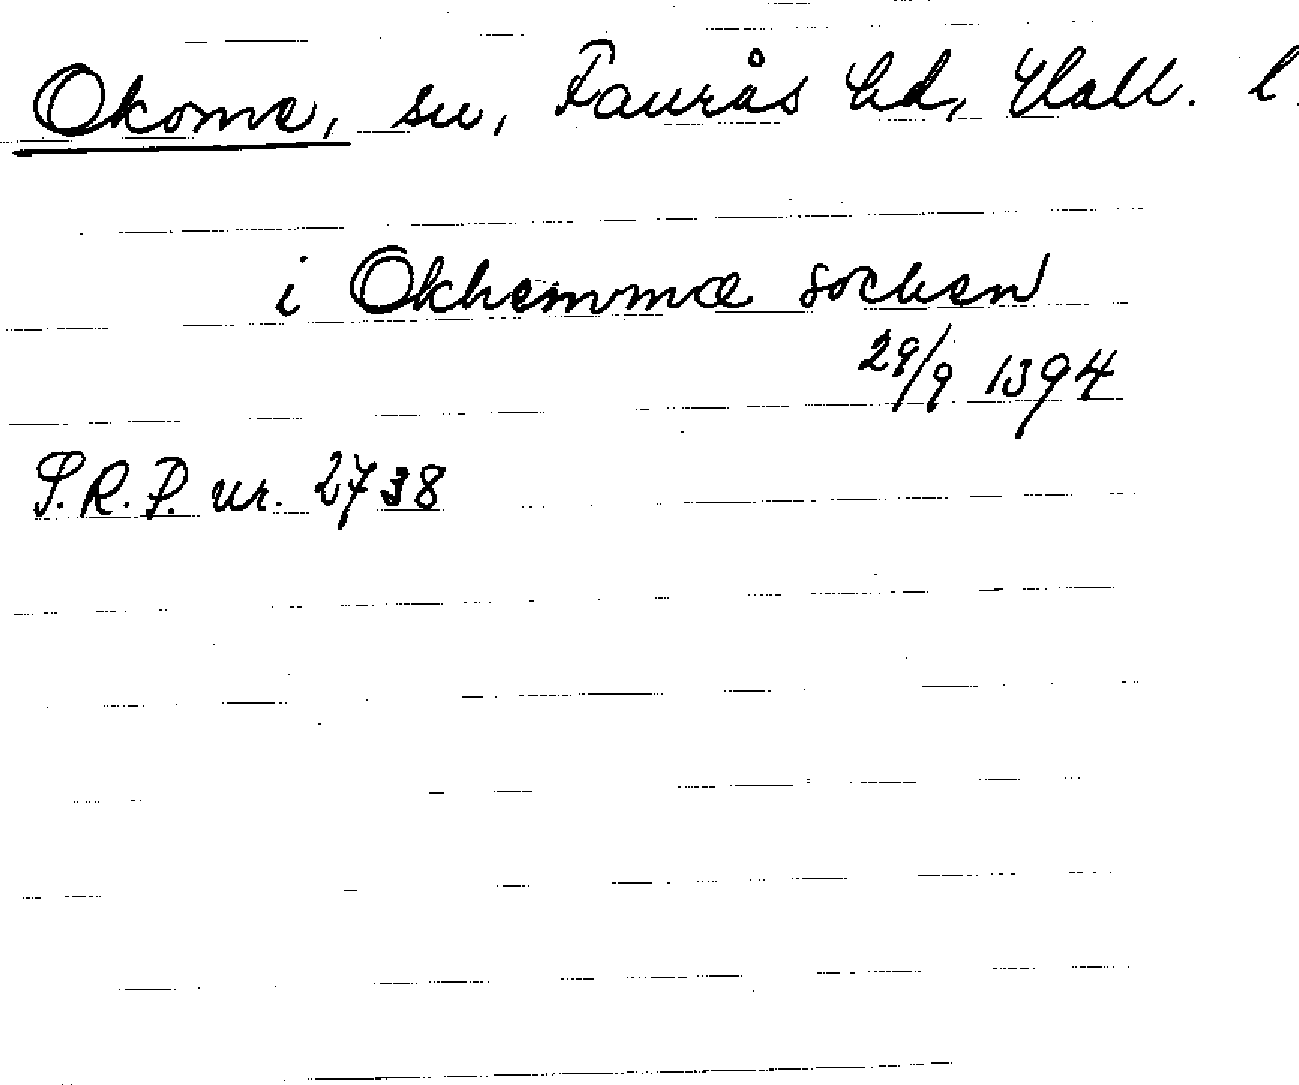 Okome, sn, Faurås hd, Hall. l.
i Okhemmæ sochen
29/9 1394
S.R.P. nr. 2738